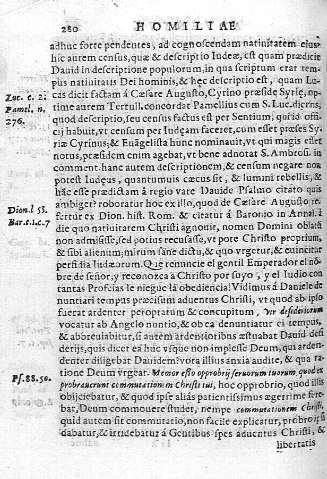 280 HOMILIAE
adhuc forte pendentes, ad cognoscendam natiuitatem eius-
hic autem census, quæ & descriptio Iudeæ, est quam prædicit
Dauid in descriptione populorum, in qua scriptus erat tem-
pus natiuitatis Dei hominis, & hęc descriptio est, quam Lu-
Luc. c. 2. cas dicit factam á Cæsare Augusto, Cyrino præside Syrię, op-
Pamel. n. time autem Tertull. concordat Pamellius cum S. Luc. dicẽns,
276. quod descriptio, seu census factus est per Sentium; quia id offi-
cij habuit, vt census per Iudęam faceret, cum esset præses Sy-
riæ Cyrinus; & Euãgelista hunc nominauit, vt qui magis esset
notus, præsidem enim agebat, vt bene adnotat S. Ambros. in
comment. hanc autem descriptionem, & censum negare non
potest Iudęus, quantumuis cæcus sit, & lumini rebellis; &
hãc esse prædictam á regio vate Dauide Psalmo citato quis
Dion. l 53. ambiget? roboratur hoc ex illo, quod de Cæsare Augusto re-
Bar. t. 1. c. 7 fertur ex Dion. hist. Rom. & citatur á Baronio in Annal. á
die quo natiuitatem Christi agnouit, nomen Domini oblatũ
non admisisse, sed potius recusasse, vt pote Christo proprium,
& sibi alienum; mirum sanè dictu, & quo vrgetur, & euincitur
perfidia Iudæorum. Que renuncie el gentil Emperador el nõ-
bre de señor, y reconozca à Christo por suyo, y el Iudio con
tantas Profecias le niegue la obediencia! Vidimus á Daniele de-
nuntiari tempus præcisum aduentus Christi, vt quod ab ipso
fuerat ardenter peroptatum & concupitum, Vir desideriorum
vocatur ab Angelo nuntio, & ob ea denuntiatur ei tempus,
& abbreuiabitur, si autem ardentioribus æstuabat Dauid desi
derijs, quis dicet ex his vsque non impleсse Deum, qui arden-
denter diligebat Dauidem? vota illius anxia audite, & qua ra-
tione Deum vrgear. Memor esto opprobrij seruorum tuorum quod ex
Ps. 88. 50. probrauerunt commutationem Christi tui, hoc opprobrio, quod illis
obijciebatur, & quod ipse aliàs patientissimus ægerrime fere-
bat, Deum commouere studet, nempe commutationem Christi,
quid autem sit commutatio, non facile explicatur, probro is
dabatur, & irridebatur á Gentibus spes aduentus Christi, &
libertatis